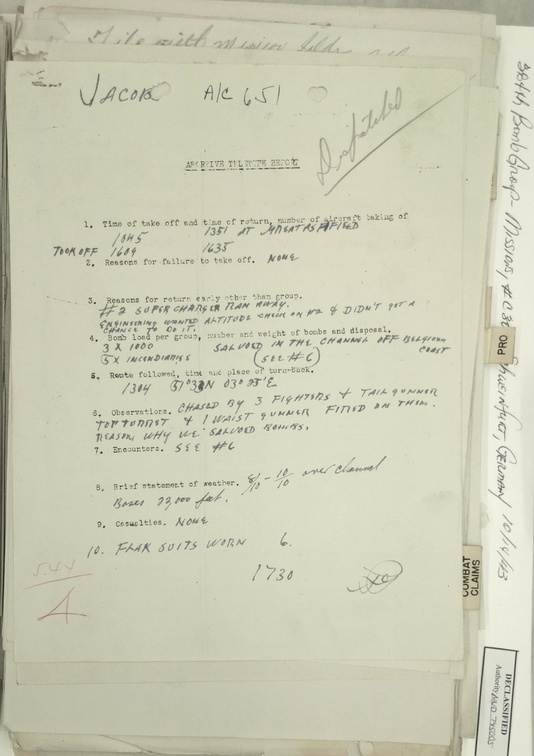 File with mission folder
JACOB A/C 651
Dispatched
ABORTIVE TELETYPE REPORT
1. Time of take off and time of return, number of aircraft taking of
1045 1351 AT
TOOK OFF 1609 1635
2. Reasons for failure to take off. NONE
3. Reasons for return early other than group.
#2 SUPERCHARGER RAN AWAY.
ENGINEERING WANTED ALTITUDE CHECK ON #2 & DIDN'T GET A
CHANCE TO DO IT.
4. Bomb load per group, number and weight of bombs and disposal.
3 X 1000 SALVOED IN THE CHANNEL OFF BELGIUM
5X INCENDIARIES (SEE #6) COAST
5. Route followed, time and place of turn-back.
1304 51°32N 03°25'E
6. Observations. CHASED BY 3 FIGHTERS & TAIL GUNNER
TOP TURRET & 1 WAIST GUNNER FIRED ON THEM.
REASON WHY WE SALVOED BOMBS.
7. Encounters. SEE #6
8. Brief statement of weather. 8/10 - 10/10 over channel
Bases 23,000 feet.
9. Casualties. NONE
10. FLAK SUITS WORN 6.
1730
5.4x
4
384th Bomb Group - Missions, Schweinfurt, Germany 10/14/43
PRO
COMBAT
CLAIMS
DECLASSIFIED
Authority